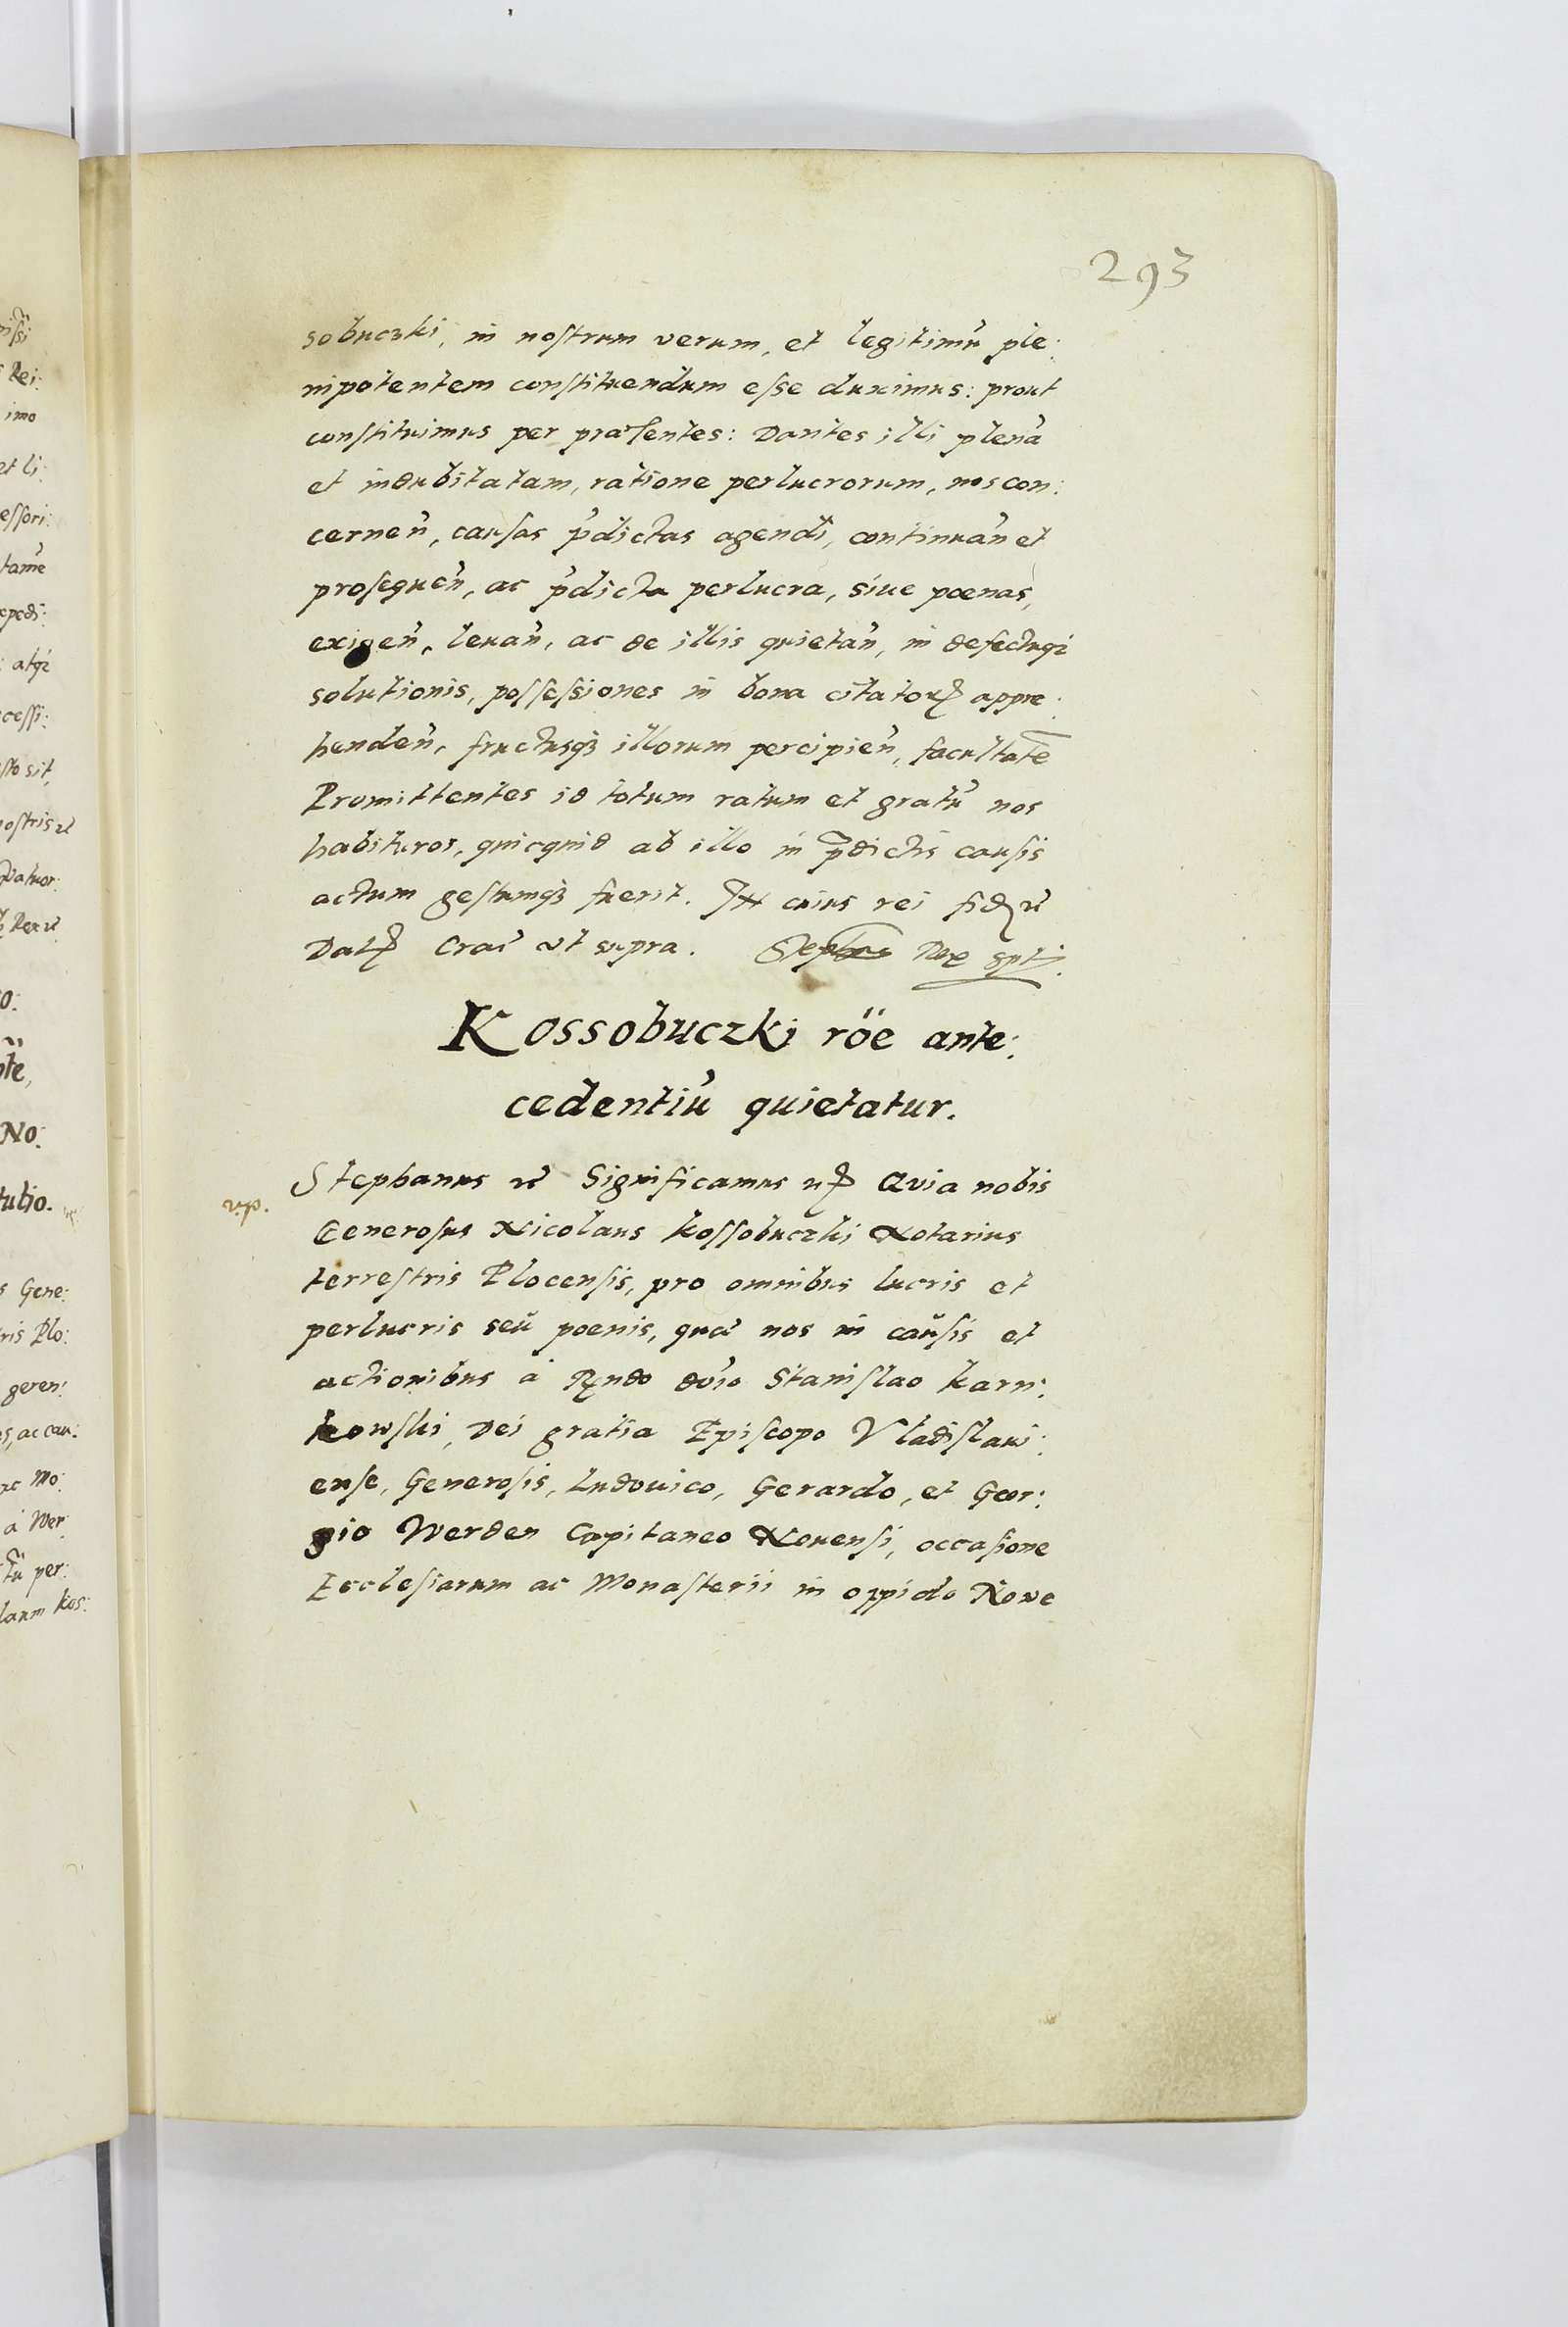 293
sobuczki, in nostrum verum, et legitimũ ple:
nipotentem constituendum esse duximus: prout
constituimus per præsentes: Dantes illi plenã
et indubitatam, ratione perlucrorum, nos con:
cerneñ, causas p̃dictas agendi, continuañ et
prosequeñ, ac p̃dicta perlucra, siue poenas,
exigeñ, leuañ, ac de illis quietañ, in defectuqꝫ
solutionis, possessiones in bona citatorꝝ appre:
hendeñ, fructusqꝫ illorum percipieñ, facultatẽ
Promittentes id totum ratum et gratũ nos
habituros, quicquid ab illo in p̃dictis causis
actum gestumqꝫ fuerit. In cuius rei fidẽ
Datꝭ Crač ut supra. Rex
Kossobuczki rõe ante:
cedentiũ quietatur.
Stephanus Significamus Quia nobis
Generosus Nicolaus Kossobuczki Notarius
terrestris Plocensis, pro omnibus lucris et
perlucris seu poenis, quæ nos in causis et
actionibus à Rṇdo dño Stanislao Karn:
kowski, Dei gratia Episcopo Vladislaui:
ense, Generosis, Ludouico, Gerardo, et Geor:
gio Werden Capitaneo Nouensi, occasione
Ecclesiarum ac Monasterii in oppido Nowe
imo
et li:
cessi:
sto sit,
No:
s Gene:
ris Plo:
geren:
s, ac cau:
Mo:
à Wer
tũ per:
laum Kos: